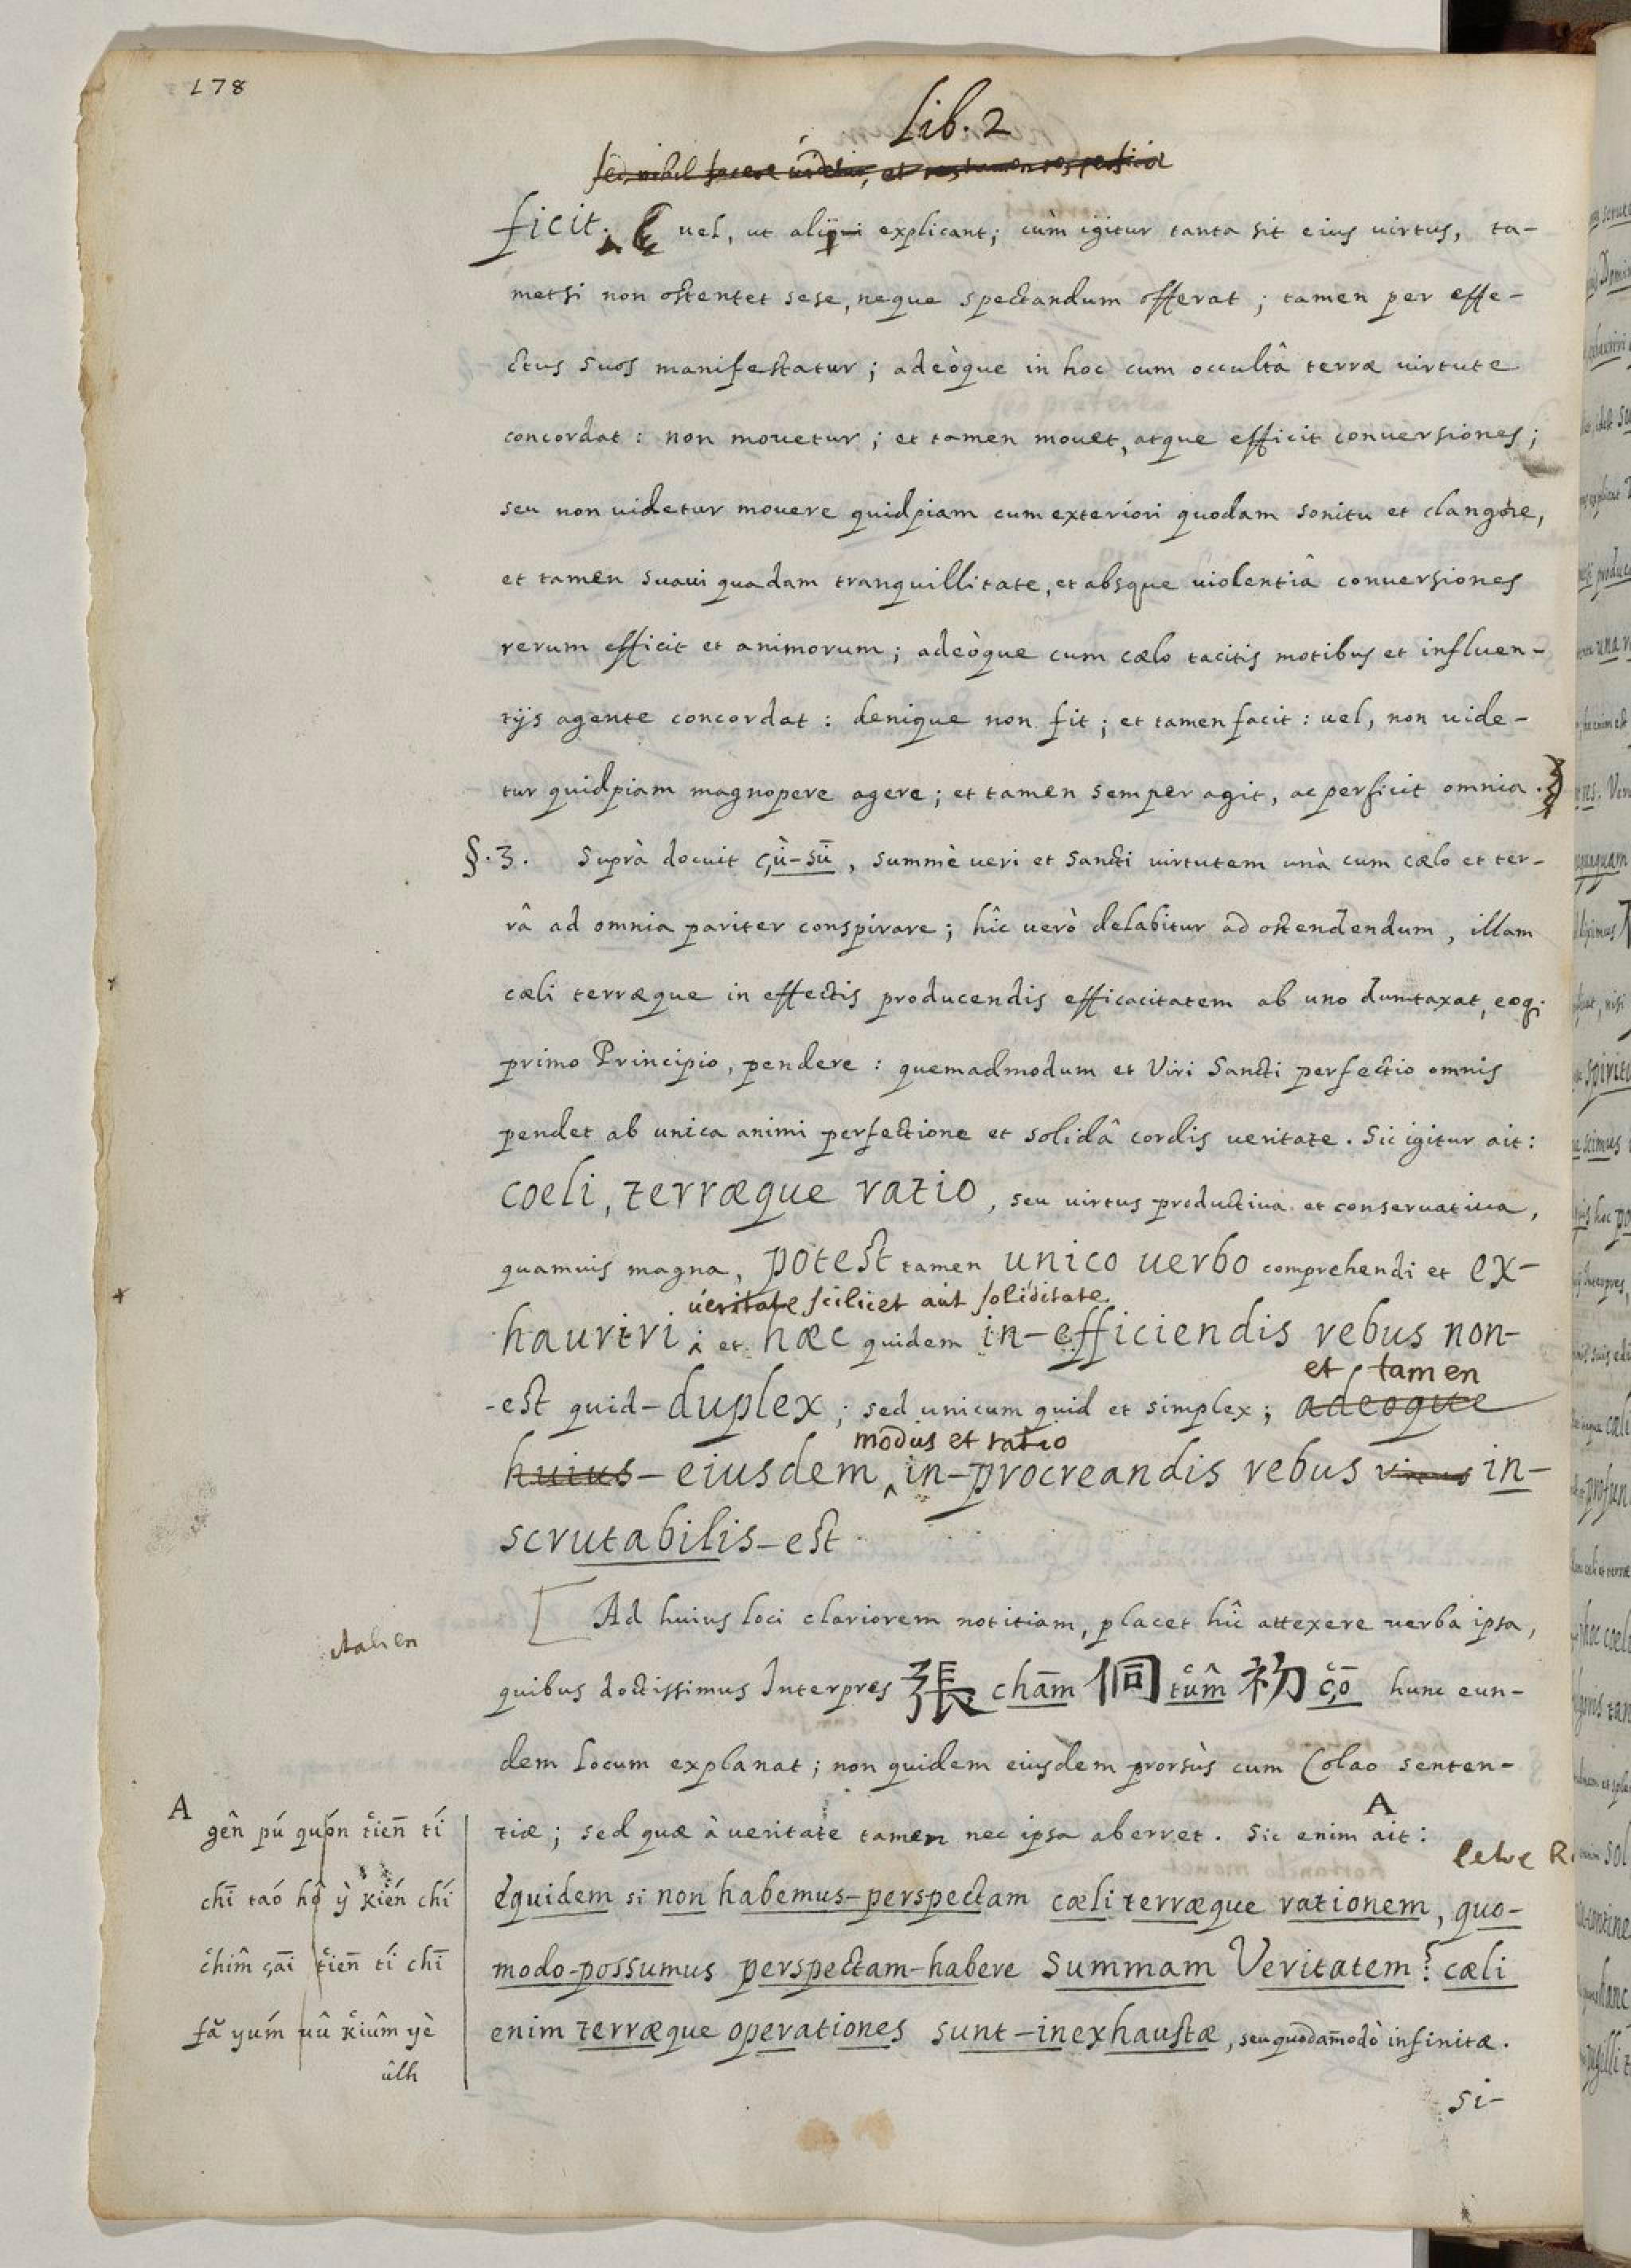 178
Lib. 2
sed nihil facere videtur, et
ficit. uel, ut alij explicant; cùm igitur tanta sit eius uirtus, ta-
metsi non ostentet sese, neque spectandum offerat; tamen per effe-
ctus suos manifestatur; adeòque in hoc cum occultâ terræ uirtute
concordat: non mouetur; et tamen mouet, atque efficit conuersiones;
seu non uidetur mouere quidpiam cum exteriori quodam sonitu et clangore,
et tamen suaui quadam tranquillitate, et absque uiolentiâ conuersiones
rerum efficit et animorum; adeòque cum cælo tacitis motibus et influen-
tijs agente concordat: denique non fit; et tamen facit: uel, non uide-
tur quidpiam magnopere agere; et tamen semper agit, ac perficit omnia.
§. 3. Suprà docuit çù-sū, summè ueri et Sancti uirtutem unà cum cælo et ter-
râ ad omnia pariter conspirare; hîc uerò delabitur ad ostendendum, illam
cæli terræque in effectis producendis efficacitatem ab uno dumtaxat, eoq;
primo Principio, pendere: quemadmodum et Viri Sancti perfectio omnis
pendet ab unica animi perfectione et solidâ cordis ueritate. Sic igitur ait:
coeli, terræque ratio, seu uirtus productiua et conseruatiua,
quamuis magna, potest tamen unico uerbo comprehendi et ex-
ueritate scilicet aut soliditate.
hauriri; et hæc quidem in-efficiendis rebus non-
et tamen
-est quid-duplex; sed unicum quid et simplex; adeoque
modus et ratio
huius-eiusdem in-procreandis rebus virtus in-
scrutabilis-est
[ Ad huius loci clariorem notitiam, placet hîc attexere uerba ipsa,
quibus doctissimus Interpres 張 chām 侗 tûm 初 çō hunc eun-
dem locum explanat; non quidem eiusdem prorsùs cum Colao senten-
A
tiæ; sed quæ à ueritate tamen nec ipsa aberret. Sic enim ait:
equidem si non habemus-perspectam cæli terræque rationem, quo-
modo-possumus perspectam-habere Summam Veritatem? cæli
enim terræque operationes sunt-inexhaustæ, seu quodam̄odò infinitæ.
si-
A
gên pú quón tien̄ tí
chī taó hô ỳ kién chí
chîm çāi tien̄ tí chī
fă yúm uû kiûm yè
ûlh